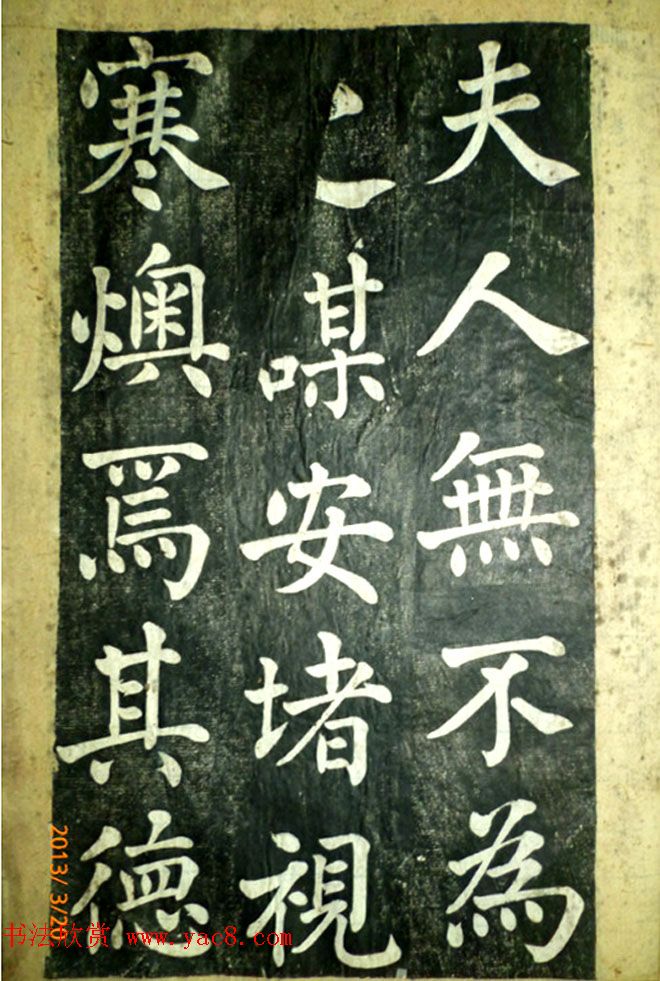 夫人無不為
之謀安堵視
寒燠焉其德
2013/ 3/
书法欣赏 www.yac8.com